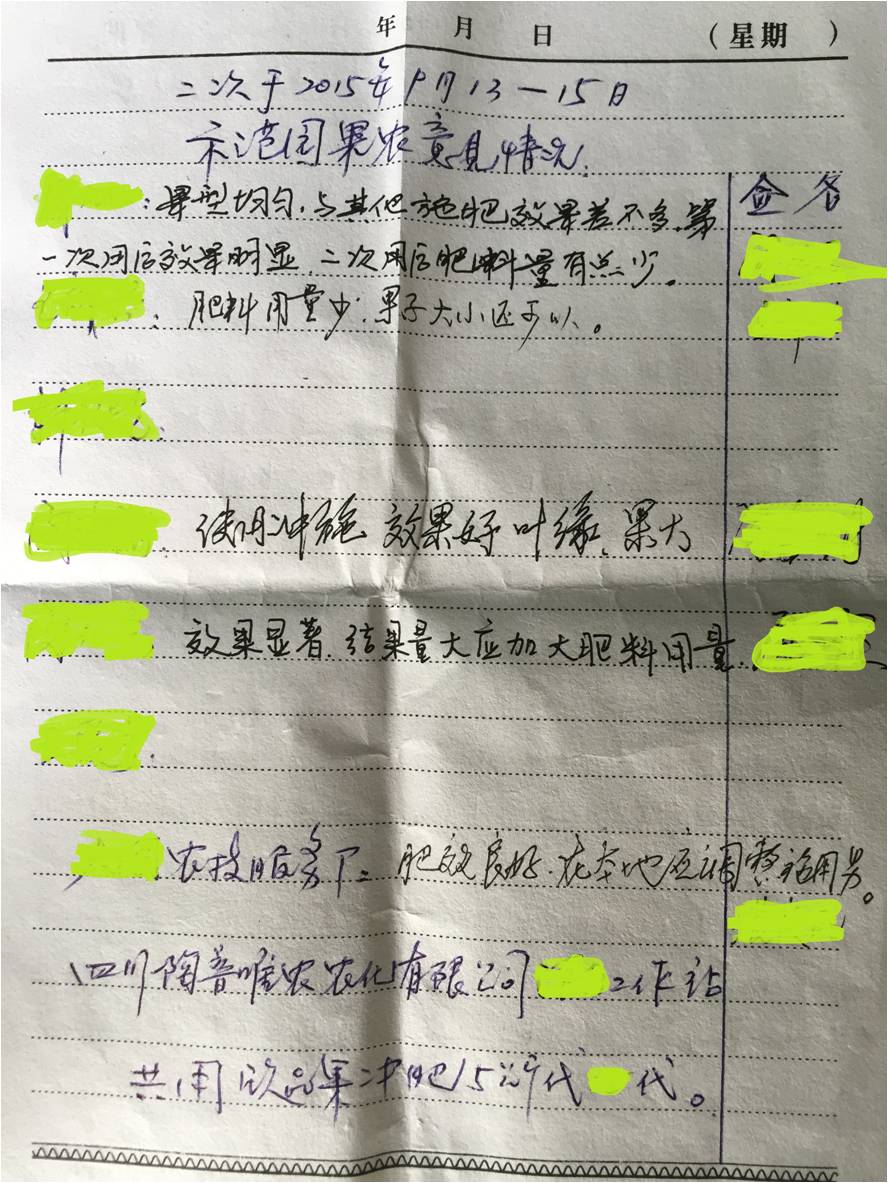 年 月 日 （星期 ）
二次于2015年9月13—15日
示范园果农意见情况.
签名
：果型均匀.与其他施肥效果差不多.第
一次用后效果明显.二次用后肥料量有点少。
：肥料用量少.果子大小还可以。
使用冲施 效果好 叶绿.果大
效果显著.结果量大应加大肥料用量.
农技服务 ：肥效良好.在本地应调整施用
四川陶普唯农农化有限公司 工作站
共用 果冲肥15 代 代。